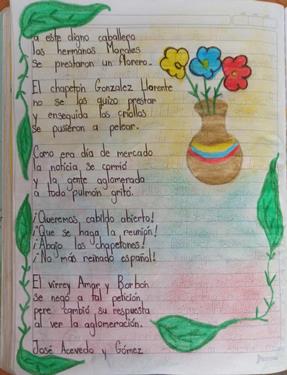 a este digno caballero
los hermanos Morales
se prestaron un florero.
El chapetón Gonzalez Llorente
no se los quizo prestar
y enseguida los criollos
se pusieron a pelear.
Como era día de mercado
la noticia se corrió
y la gente aglomerada
a todo pulmón gritó.
¡Queremos, cabildo abierto!
¡Que se haga la reunión!
¡Abajo los chapetones!
¡No más reinado español!
El virrey Amar y Borbón
se negó a tal petición
pere cambió su respuesta
al ver la aglomeración.
José Acevedo y Gómez